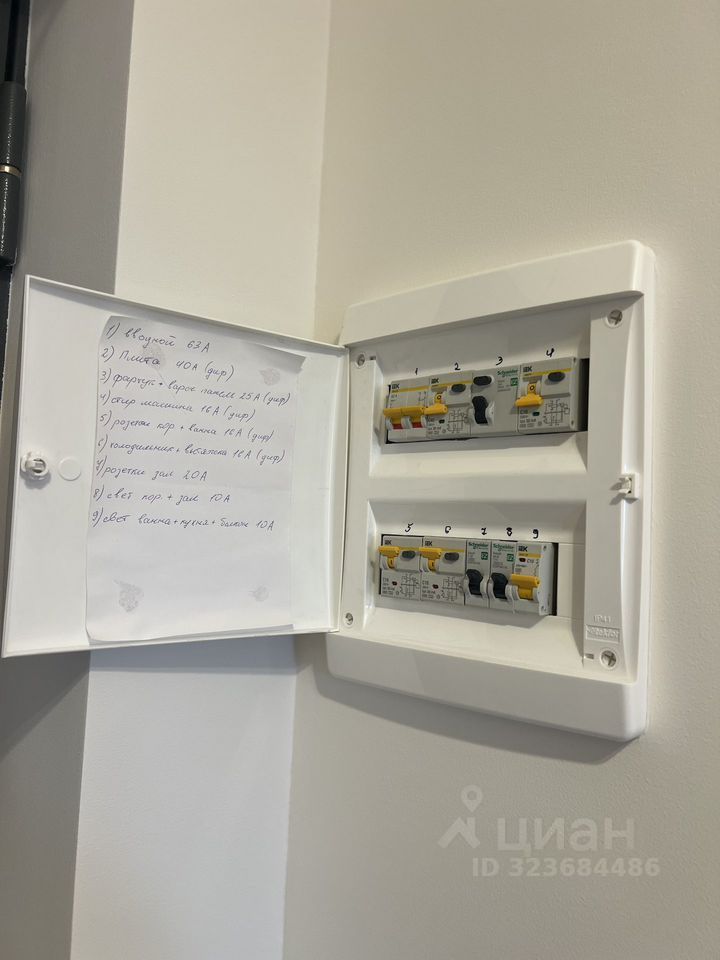 1) вводной 63А
2) Плита 40А (диф)
3) фартук + вароч панель 25А (диф)
4) стир машина 16А (диф)
5) розетки кор + ванна 16А (диф)
6) холодильник + вытяжка 16А (диф)
7) розетки зал 20А
8) свет кор. + зал 10А
9) свет ванна + кухня + балкон 10А
1 2 3 4
IEK IEK Schneider IEK
5 6 7 8 9
IEK IEK Schneider Schneider IEK
C16 C16 C10
IP41
tekfor
циан
ID 323684486